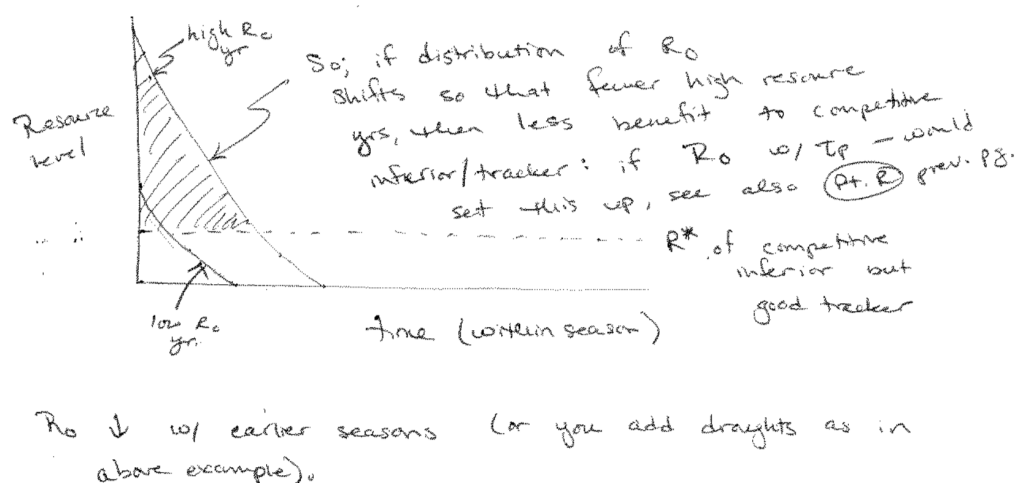 high Ro
yr
Resource
level
So; if distribution of Ro
shifts so that fewer high resource
yrs, then less benefit to competitive
inferior/tracker: if Ro w/ τp – would
set this up, see also pt. R prev. pg.
R* of competitive
inferior but
good tracker
low Ro
yr.
time (within season)
Ro ↓ w/ earlier seasons (or you add draughts as in
above example).